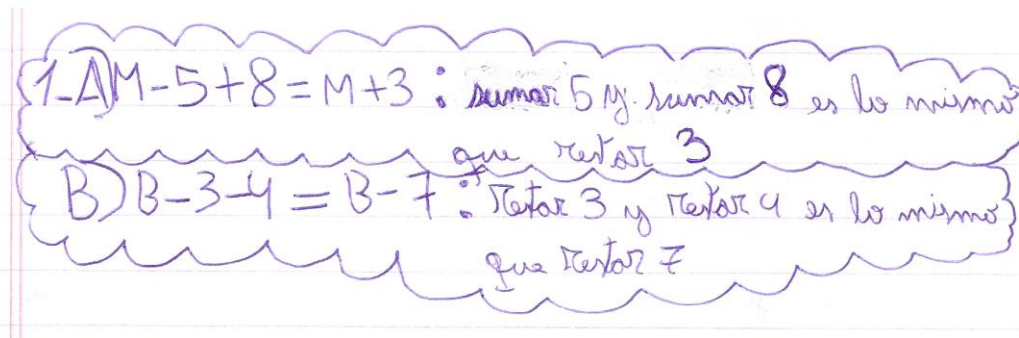 1-A) M-5+8=M+3 : sumar 5 y sumar 8 es lo mismo
que restar 3
B) B-3-4=B-7 : restar 3 y restar 4 es lo mismo
que restar 7